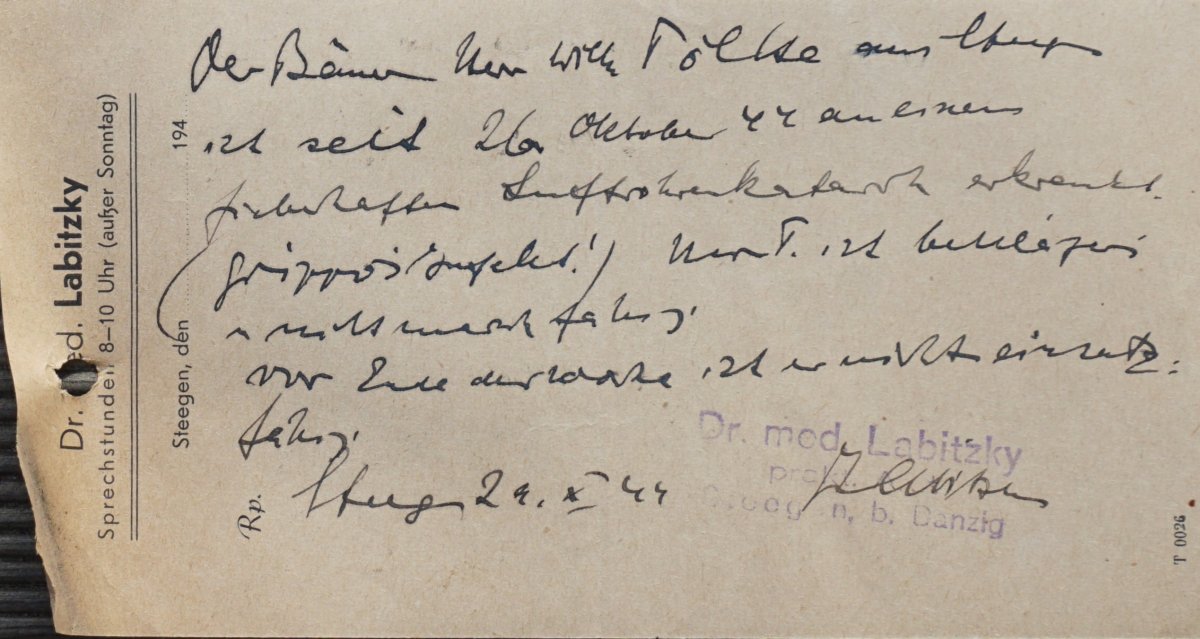 Dr. med. Labitzky
Sprechstunden 8–10 Uhr (außer Sonntag)
Steegen, den 194
Der Bäuer Herr Willi Töltke aus Steegen
ist seit 26. Oktober 44 an einem
fieberhaften Luftröhrenkatarrh erkrankt.
(grippöse Infekt!) Herr T. ist bettlägerig
u nicht marschfähig.
vor Ende der Woche ist er nicht einsatz-
fähig.
Rp. Steegen 29. X 44
Dr. med. Labitzky
prakt.
Steegen, b. Danzig
T 0026